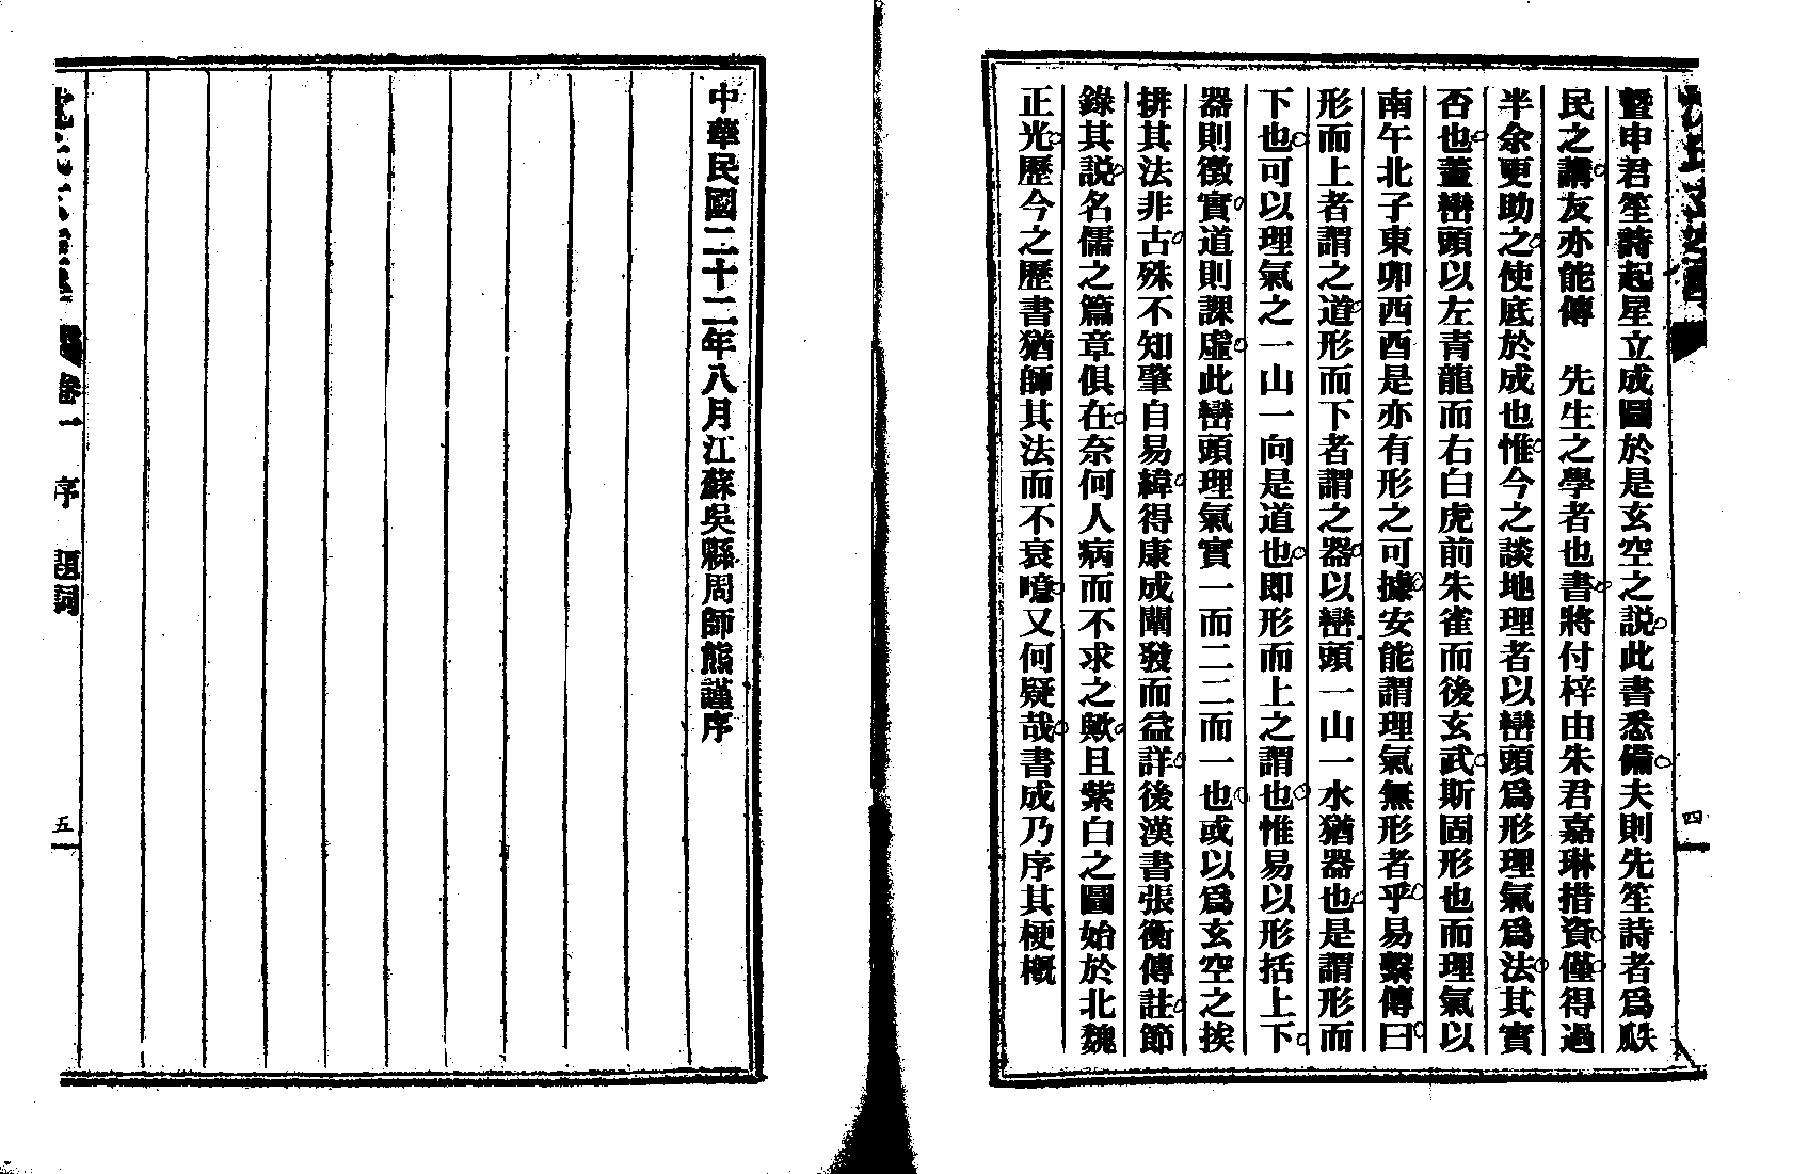 暨申君笙詩起星立成圖於是玄空之説此書悉備夫則先笙詩者爲
民之講友亦能傳　先生之學者也書將付梓由朱君嘉琳措資僅得過
半余更助之使底於成也惟今之談地理者以巒頭爲形理氣爲法其實
否也蓋巒頭以左青龍而右白虎前朱雀而後玄武斯固形也而理氣以
南午北子東卯西酉是亦有形之可據安能謂理氣無形者乎易繫傳曰
形而上者謂之道形而下者謂之器以巒頭一山一水猶器也是謂形而
下也可以理氣之一山一向是道也即形而上之謂也惟易以形括上下
器則徵實道則課虛此巒頭理氣實一而二二而一也或以爲玄空之挨
排其法非古殊不知肇自易緯得康成闡發而益詳後漢書張衡傳註節
錄其説名儒之篇章俱在奈何人病而不求之歟且紫白之圖始於北魏
正光歷今之歷書猶師其法而不衰噫又何疑哉書成乃序其梗概
四
中華民國二十二年八月江蘇吳縣周師熊謹序
卷一　序　題詞
五